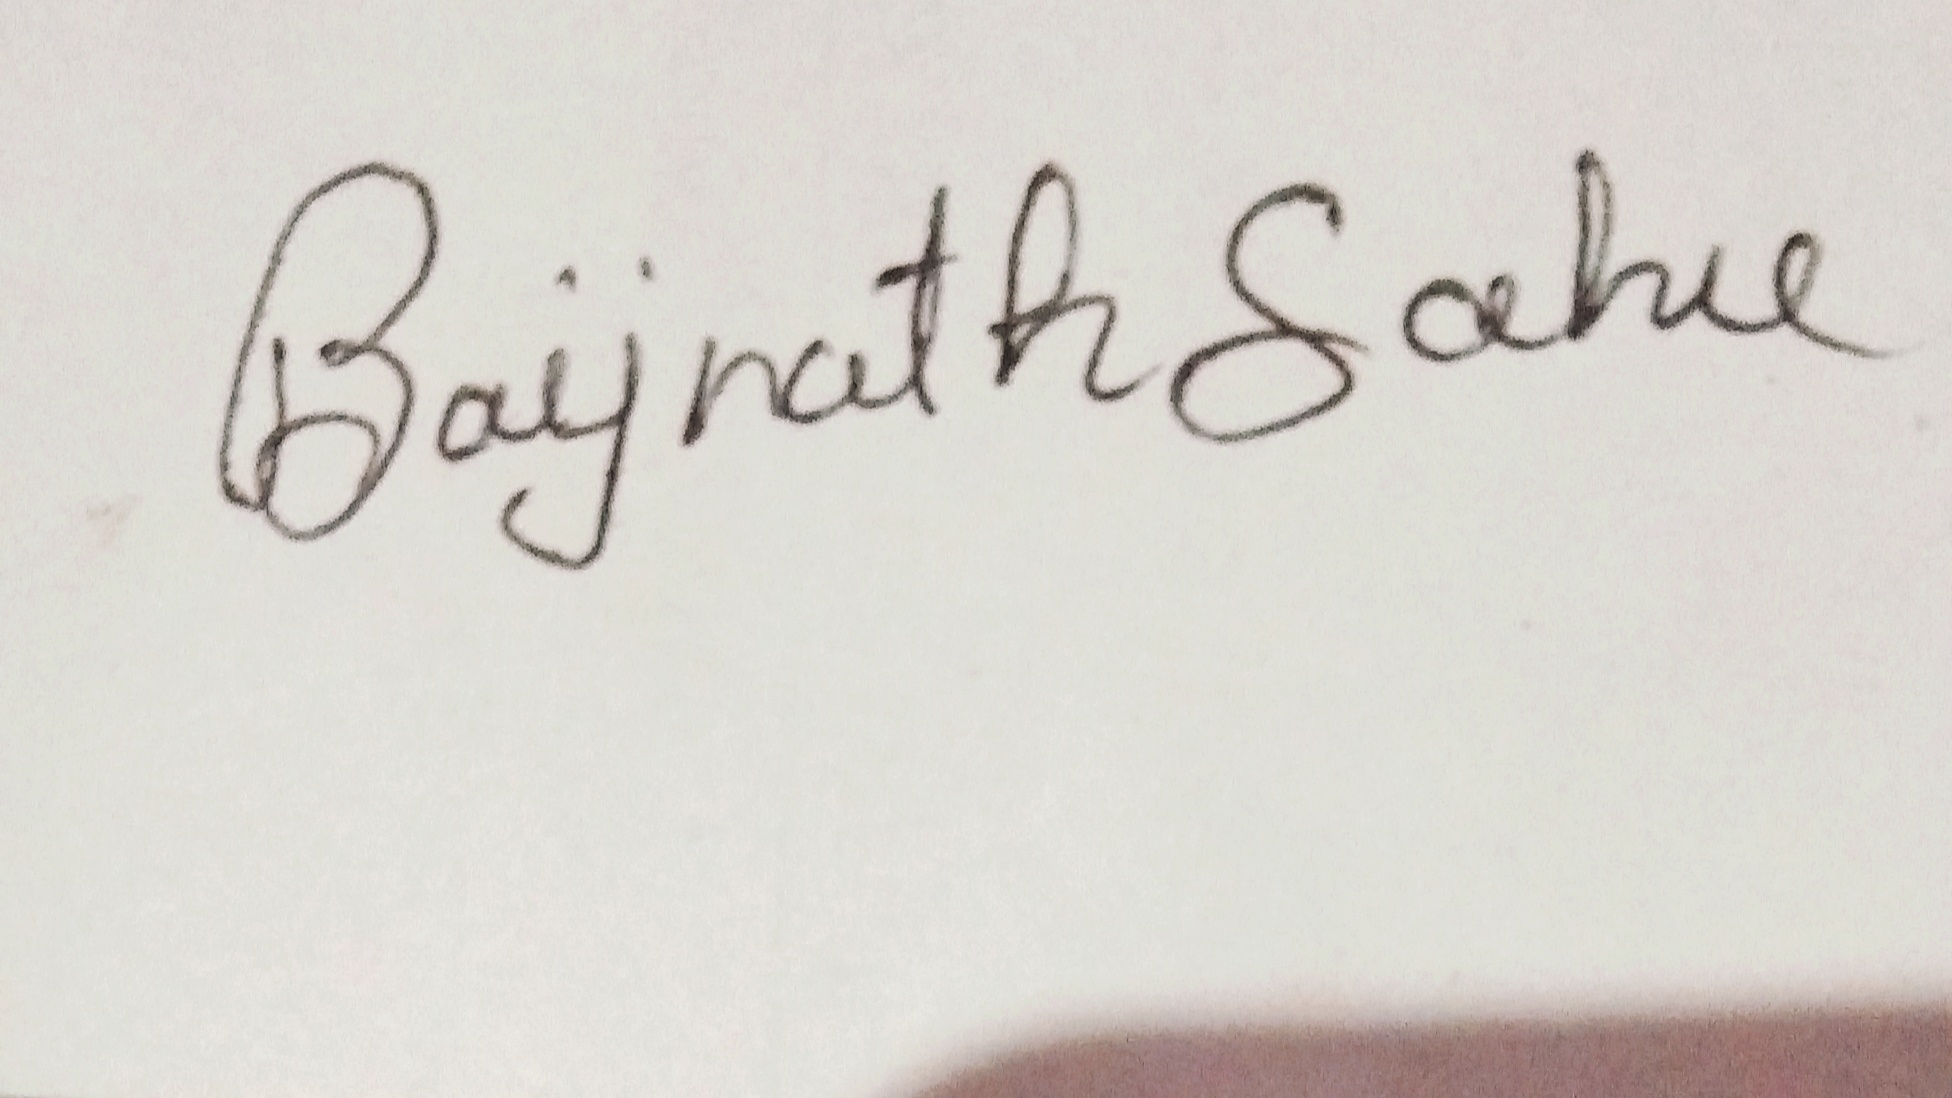 Baijnath Sahu